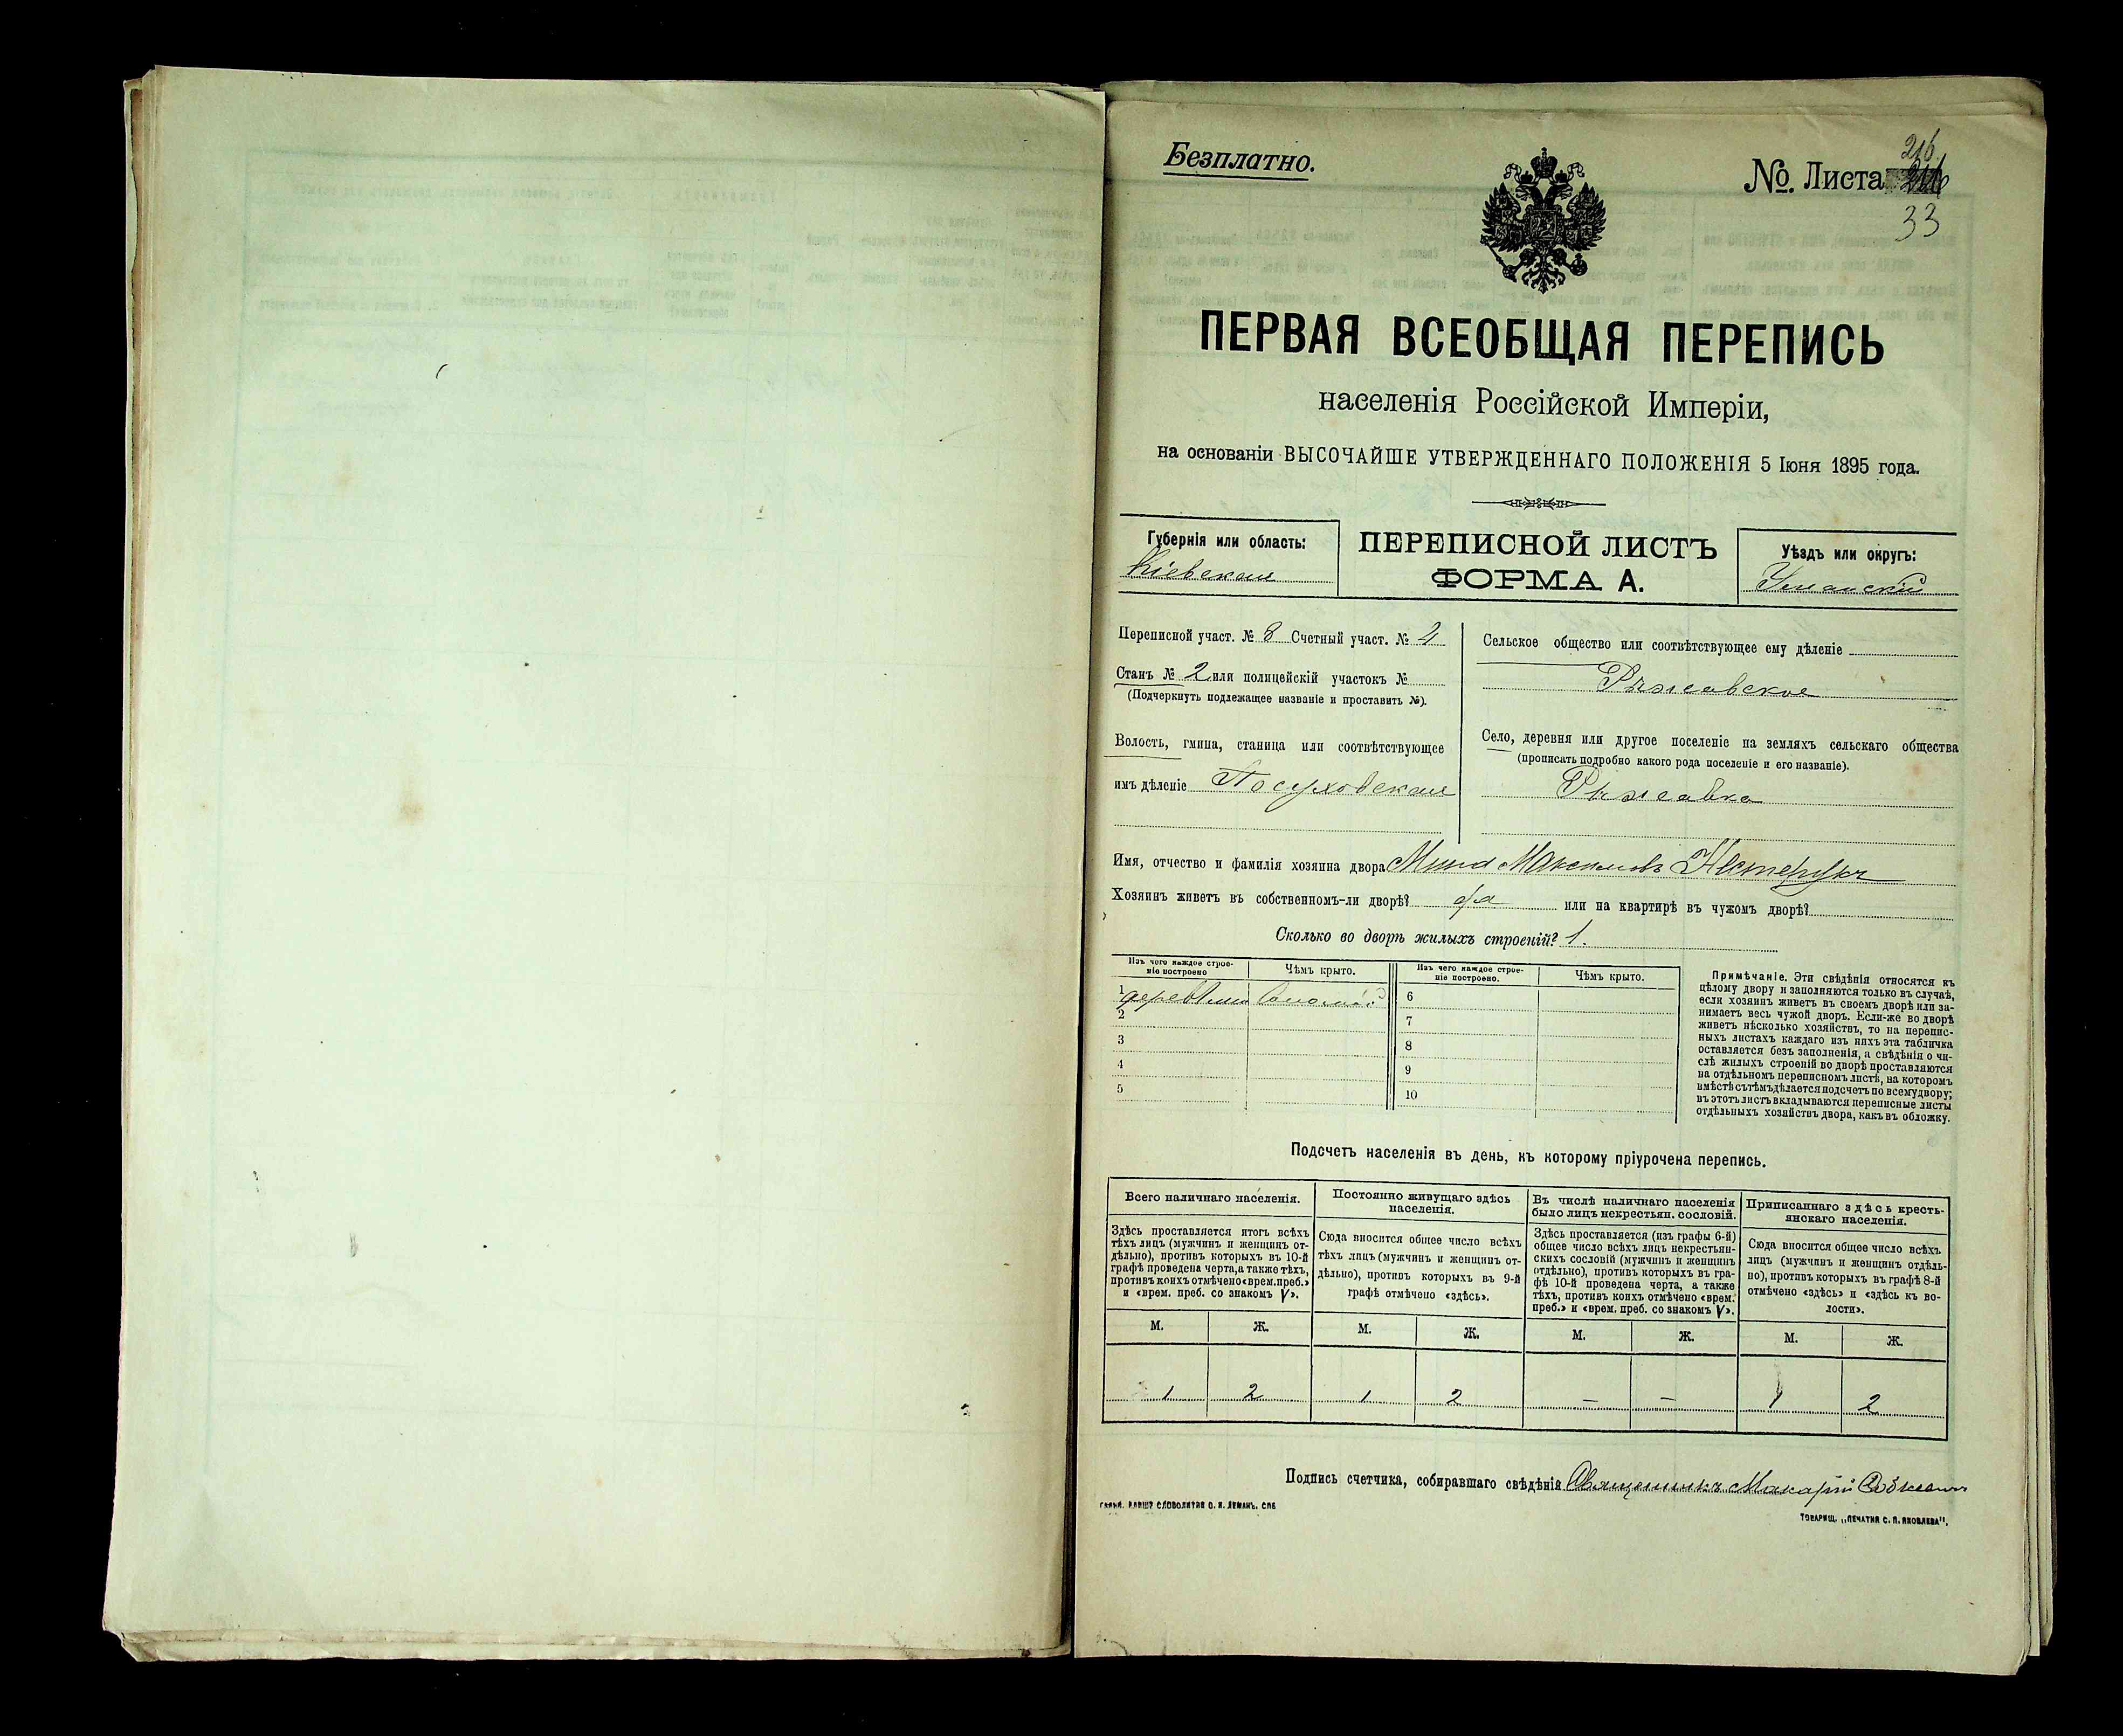 Безплатно.
№. Листа 216
33
ПЕРВАЯ ВСЕОБЩАЯ ПЕРЕПИСЬ
населенія Россійской Имперіи,
на основаніи ВЫСОЧАЙШЕ УТВЕРЖДЕННАГО ПОЛОЖЕНІЯ 5 Іюня 1895 года.
Губернія или область:
Кіевская
ПЕРЕПИСНОЙ ЛИСТЪ
ФОРМА А.
Уѣздъ или округъ:
Уманскій
Переписной участ. № 8 Счетный участ. № 4
Станъ № 2 или полицейскій участокъ №
(Подчеркнуть подлежащее названіе и проставить №).
Волость, гмина, станица или соотвѣтствующее
имъ дѣленіе Посуховская
Сельское общество или соотвѣтствующее ему дѣленіе
Ряжавское
Село, деревня или другое поселеніе на земляхъ сельскаго общества
(прописать подробно какого рода поселеніе и его названіе).
Ряжавка
Имя, отчество и фамилія хозяина двора Мина Максимовъ Нестерукъ
Хозяинъ живетъ въ собственномъ-ли дворѣ? да или на квартирѣ въ чужомъ дворѣ?
Сколько во дворѣ жилыхъ строеній? 1.
Изъ чего каждое строе-
ніе построено
Чѣмъ крыто.
Изъ чего каждое строе-
ніе построено.
Чѣмъ крыто.
1
2
3
4
5
6
7
8
9
10
Примѣчаніе. Эти свѣдѣнія относятся къ
цѣлому двору и заполняются только въ случаѣ,
если хозяинъ живетъ въ своемъ дворѣ или за-
нимаетъ весь чужой дворъ. Если-же во дворѣ
живетъ нѣсколько хозяйствъ, то на перепис-
ныхъ листахъ каждаго изъ нихъ эта табличка
оставляется безъ заполненія, а свѣдѣнія о чи-
слѣ жилыхъ строеній во дворѣ проставляются
на отдѣльномъ переписномъ листѣ, на которомъ
вмѣстѣ съ тѣмъ дѣлается подсчетъ по всему двору;
въ этотъ листъ вкладываются переписные листы
отдѣльныхъ хозяйствъ двора, какъ въ обложку.
Подсчетъ населенія въ день, къ которому пріурочена перепись.
Всего наличнаго населенія.
Здѣсь проставляется итогъ всѣхъ
тѣхъ лицъ (мужчинъ и женщинъ от-
дѣльно), противъ которыхъ въ 10-й
графѣ проведена черта, а также тѣхъ,
противъ коихъ отмѣчено «врем. преб.»
и «врем. преб. со знакомъ V».
Постоянно живущаго здѣсь
населенія.
Сюда вносится общее число всѣхъ
тѣхъ лицъ (мужчинъ и женщинъ от-
дѣльно), противъ которыхъ въ 9-й
графѣ отмѣчено «здѣсь».
Въ числѣ наличнаго населенія
было лицъ некрестьян. сословій.
Здѣсь проставляется (изъ графы 6-й)
общее число всѣхъ лицъ некрестьян-
скихъ сословій (мужчинъ и женщинъ
отдѣльно), противъ которыхъ въ гра-
фѣ 10-й проведена черта, а также
тѣхъ, противъ коихъ отмѣчено «врем.
преб.» и «врем. преб. со знакомъ V».
Приписаннаго здѣсь кресть-
янскаго населенія.
Сюда вносится общее число всѣхъ
лицъ (мужчинъ и женщинъ отдѣль-
но), противъ которыхъ въ графѣ 8-й
отмѣчено «здѣсь» и «здѣсь къ во-
лости».
М. Ж. М. Ж. М. Ж. М. Ж.
1 2 1 2 – – 1 2
Подпись счетчика, собиравшаго свѣдѣнія Священникъ Макарій
СЛОВОЛИТНЯ О. И. ЛЕМАНЪ. СПБ
ТОВАРИЩ. „ПЕЧАТНЯ С. П. ЯКОВЛЕВА".